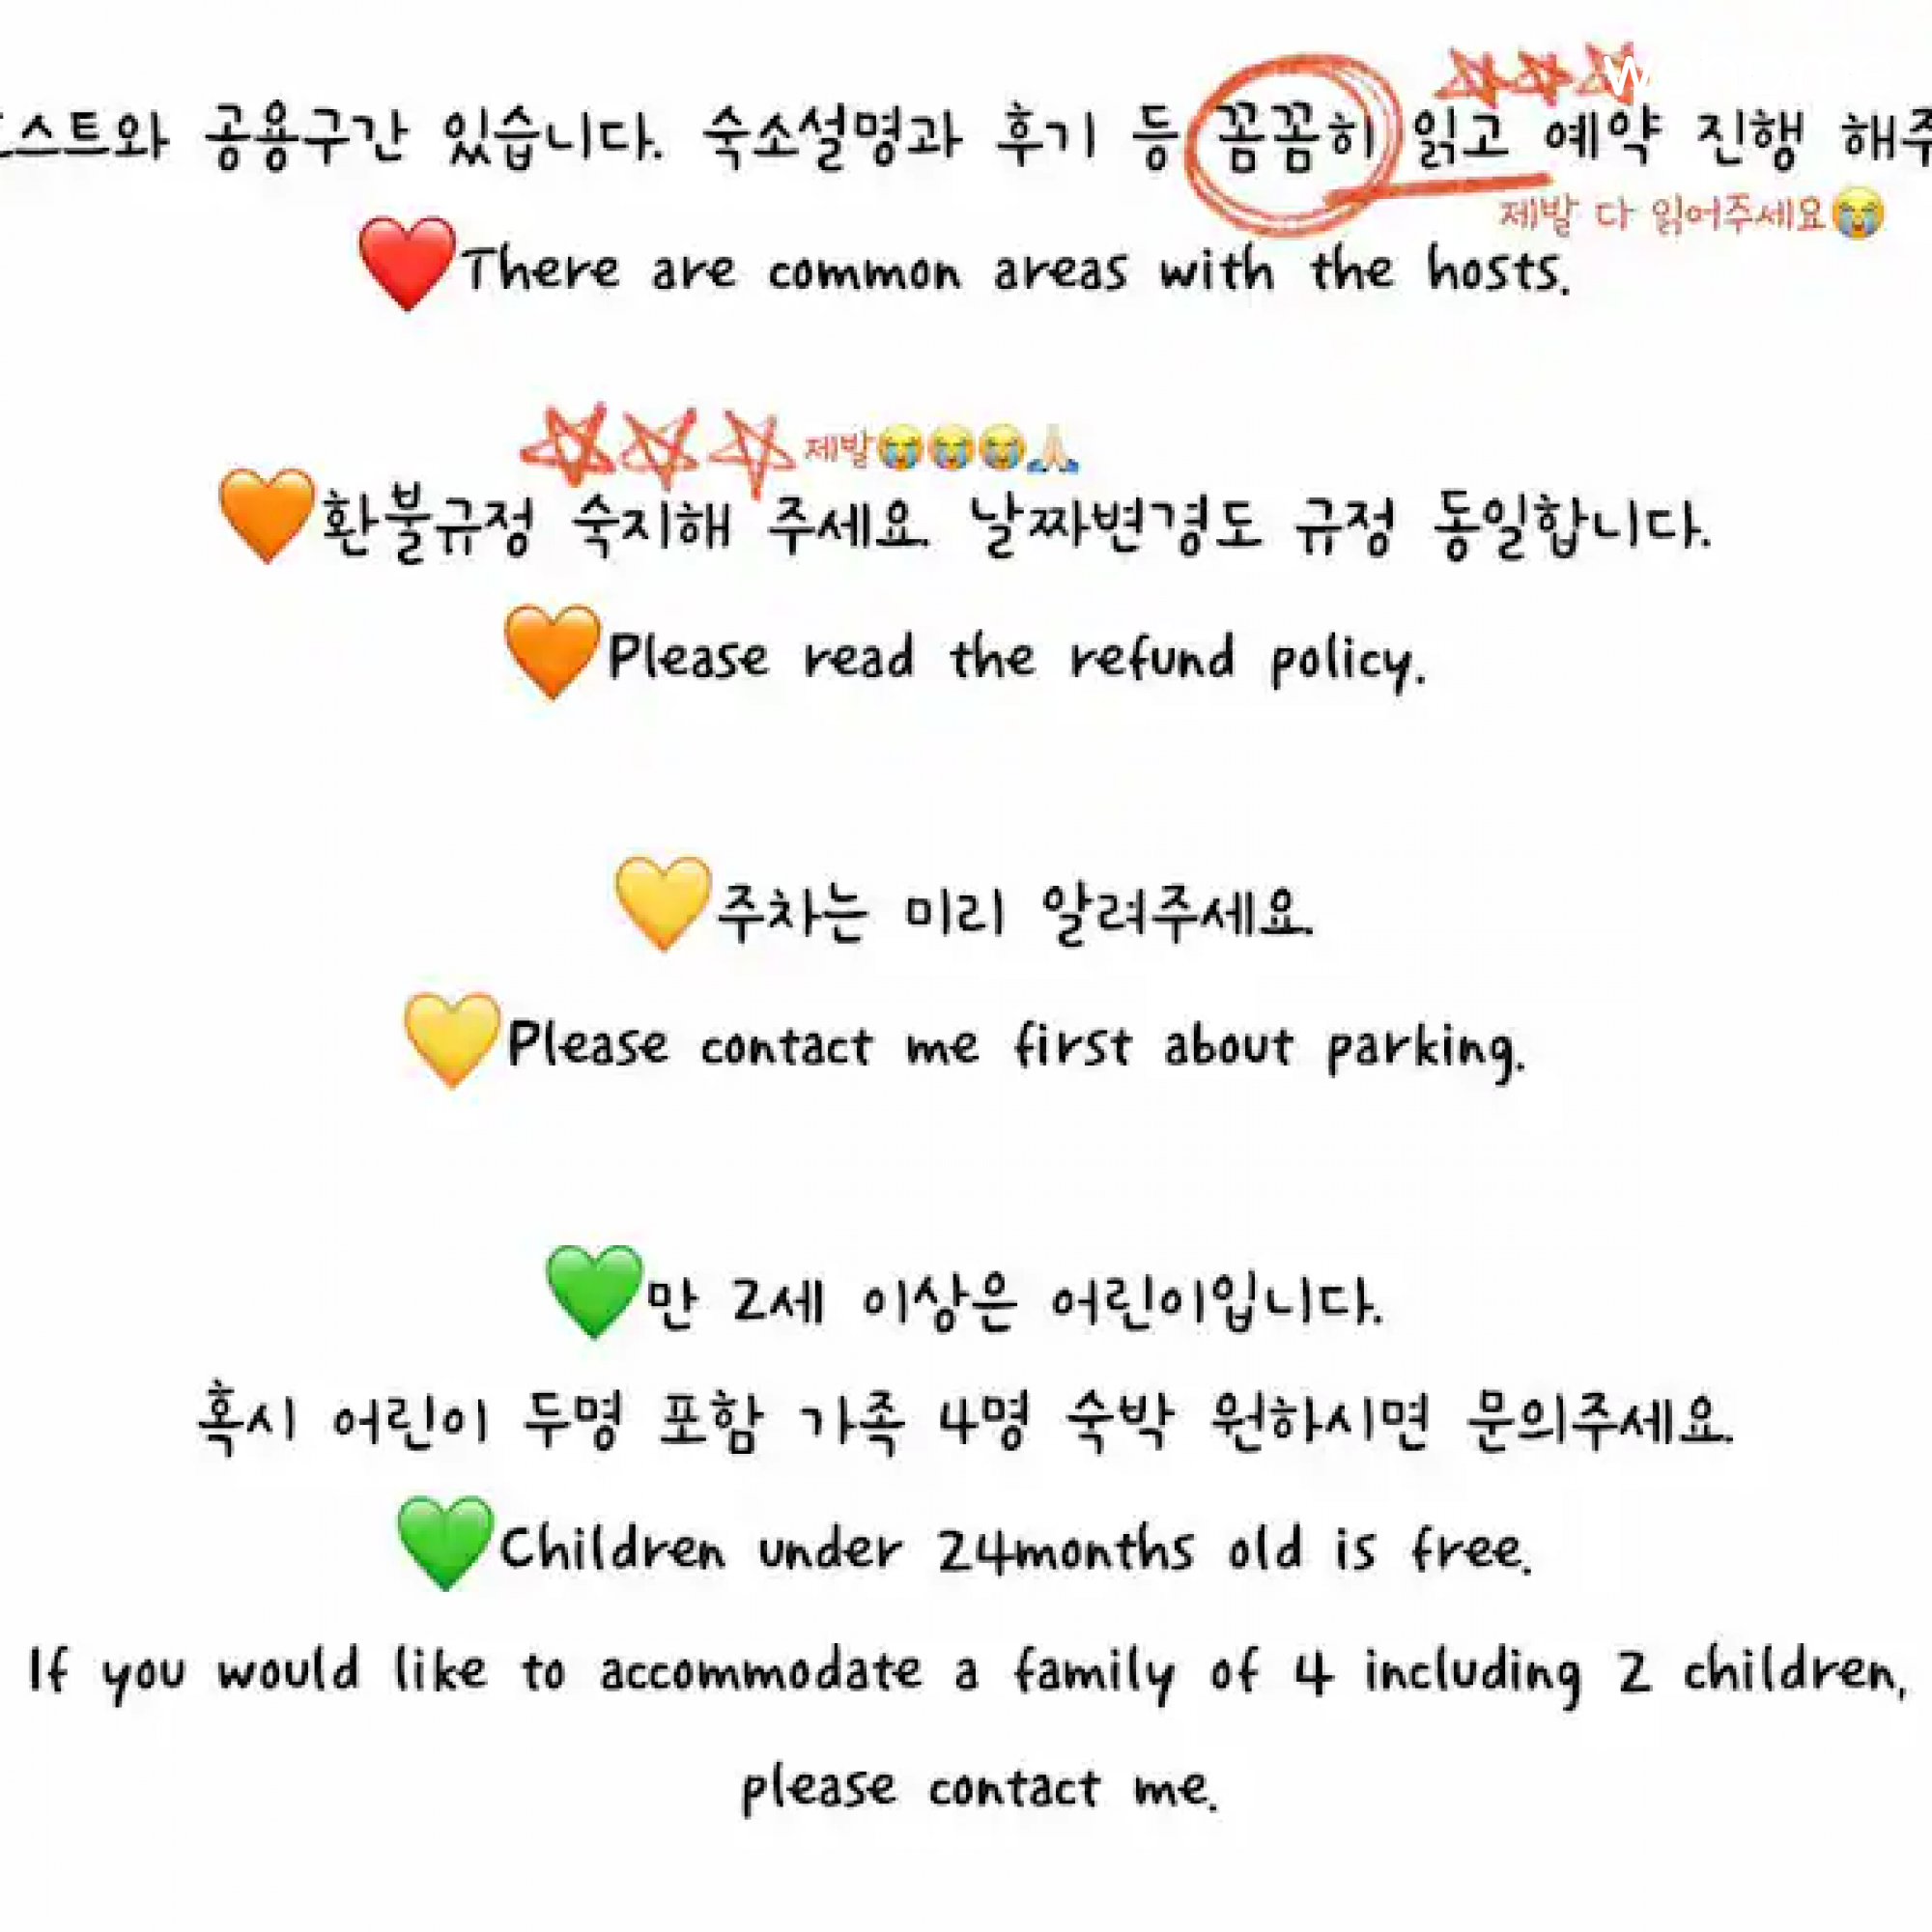 스트와 공용구간 있습니다. 숙소설명과 후기 등 꼼꼼히 읽고 예약 진행 해주
제발 다 읽어주세요😭
❤️There are common areas with the hosts.
제발😭😭😭🙏🏻
🧡환불규정 숙지해 주세요. 날짜변경도 규정 동일합니다.
🧡Please read the refund policy.
💛주차는 미리 알려주세요.
💛Please contact me first about parking.
💚만 2세 이상은 어린이입니다.
혹시 어린이 두명 포함 가족 4명 숙박 원하시면 문의주세요.
💚Children under 24months old is free.
If you would like to accommodate a family of 4 including 2 children,
please contact me.